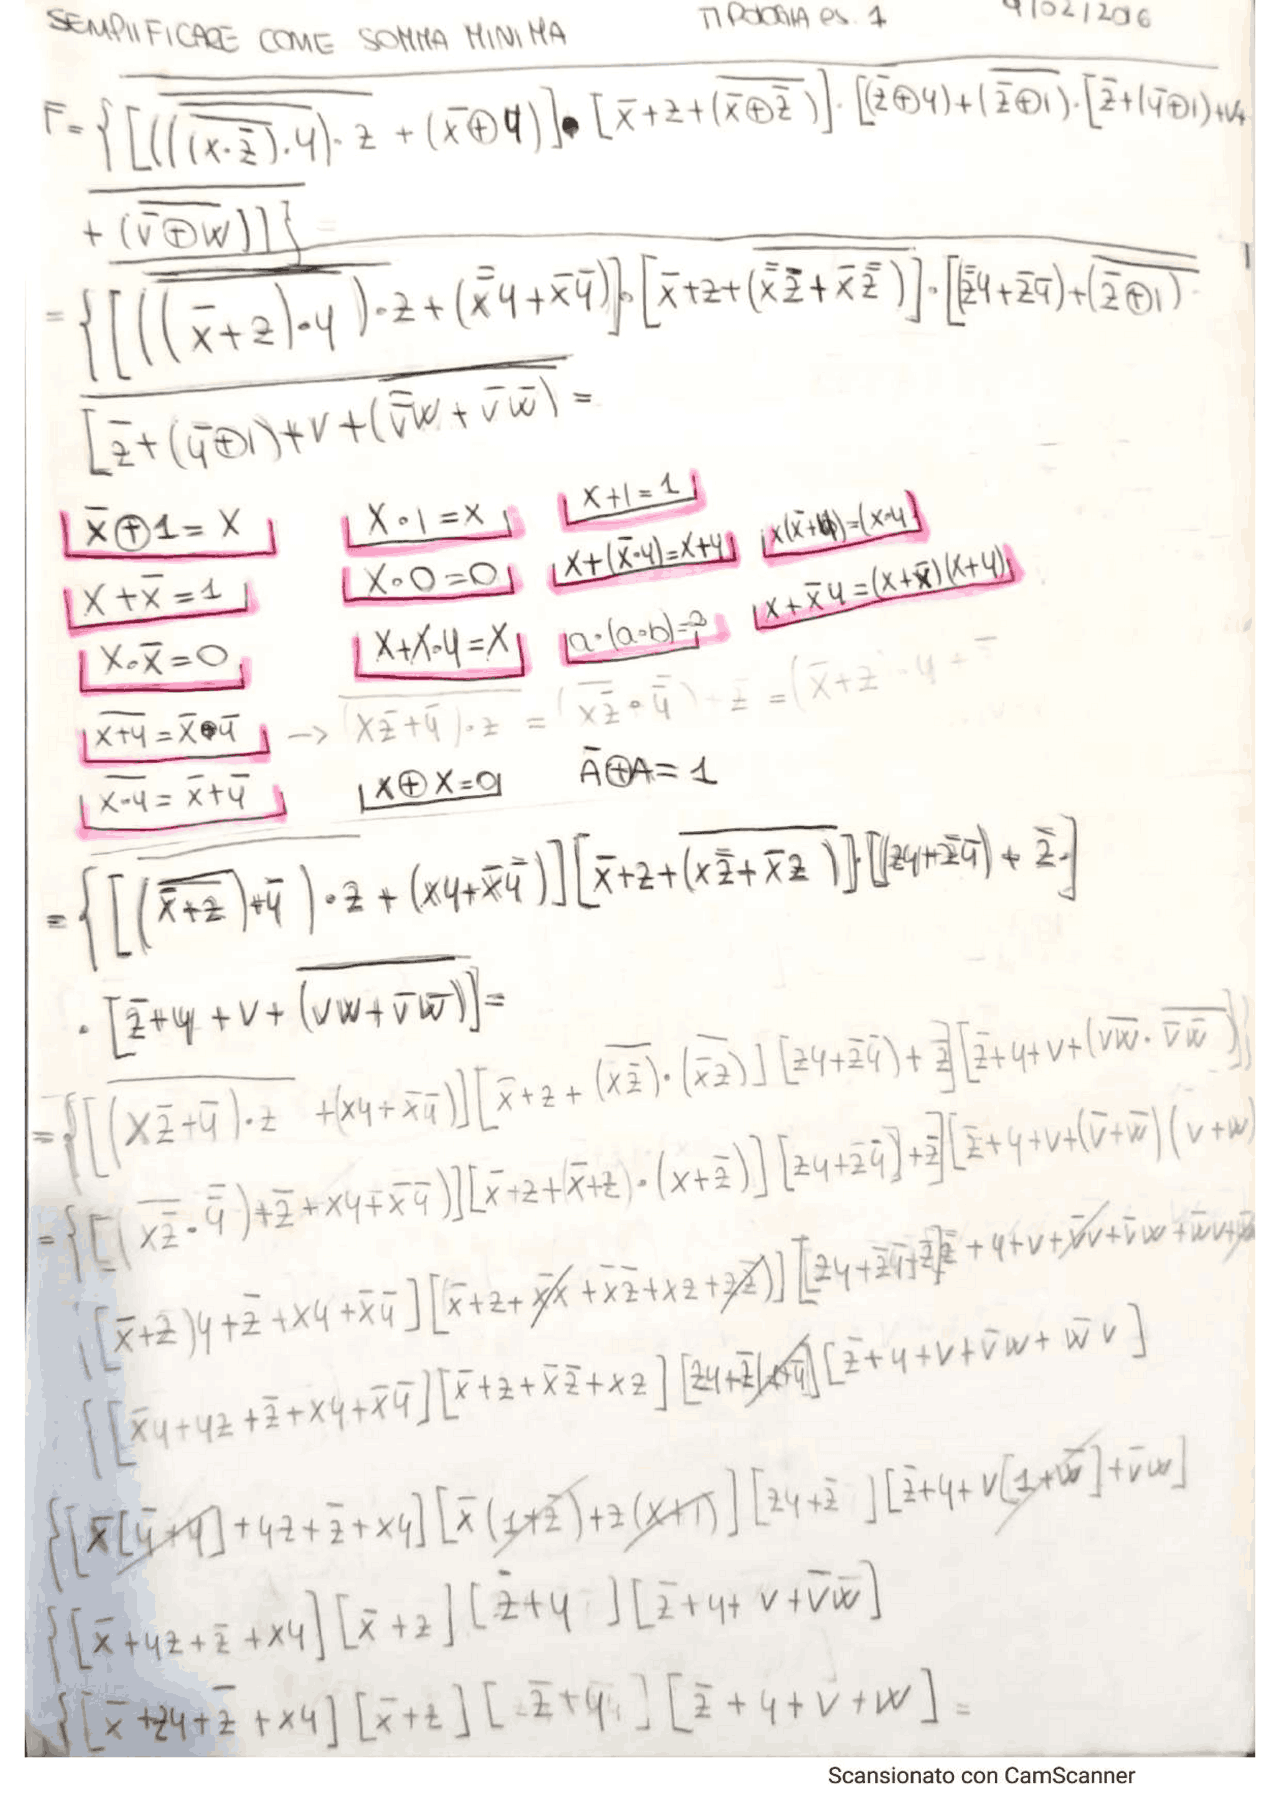 SEMPLIFICARE COME SOMMA MINIMA TIPOLOGIA es. 1 9/02/2016
F = {[(((x·z̅)·y)·z + (x̅⊕y)]·[x̅+z+(x̅⊕z̅)]·[(z̅⊕y)+(z̅⊕1)·[z̅+(y̅⊕1)+v+
+ (v̅⊕w)]]}=
= {[(((x̅+z)·y)·z+(x̿y+x̅y̅)]·[x̅+z+(x̿z̅+x̅z̿)]·[z̿y+z̅y̅)+(z̅⊕1)·
[z̅+(y̅⊕1)+v+(v̿w+v̅w̅) =
x̅⊕1=x x·1=x x+1=1
x+x̅=1 x·0=0 x+(x̅·y)=x+y x(x̅+y)=(x·y
x·x̅=0 x+x·y=x a·(a·b)= x+x̅y=(x+x̅)(x+y)
x+y=x̅·y̅ → (xz̅+y̅)·z = (xz̅·y̿)+z̅ = (x̅+z)·y+
x·y=x̅+y̅ x⊕x=0 A̅⊕A=1
={[(x̿+z)+y̅)·z+(xy+x̅y̅)][x̅+z+(xz̿+x̅z)]·[(zy+z̅y̅)+z̅·]
·[z̅+y+v+(vw+v̅w̅)]=
={[(xz̅+y̅)·z+(xy+x̅y̅)][x̅+z+(xz̅)·(x̅z)][zy+z̅y̅)+z̅][z̅+y+v+(vw·v̅w̅)]}
={[(xz̅·y̿)+z̅+xy+x̅y̅)][x̅+z+(x̅+z)·(x+z̅)][zy+z̅y̅]+z̅][z̅+y+v+(v̅+w̅)(v+w)
{[x̅+z)y+z̅+xy+x̅y̅][x̅+z+x̅x+x̅z̅+xz+zz̅)][zy+z̅y̅+z̅][z̅+y+v+v̅v+v̅w+w̅v+
{[x̅y+yz+z̅+xy+x̅y̅][x̅+z+x̅z̅+xz][zy+z̅(1+y̅)][z̅+y+v+v̅w+w̅v]
{[x̅[y̅+y]+yz+z̅+xy][x̅(1+z̅)+z(x+1)][zy+z̅][z̅+y+v[1+w̅]+v̅w]
{[x̅+yz+z̅+xy][x̅+z][z̅+y][z̅+y+v+v̅w̅]
{[x̅+zy+z̅+xy][x̅+z][z̅+y][z̅+y+v+w]=
Scansionato con CamScanner